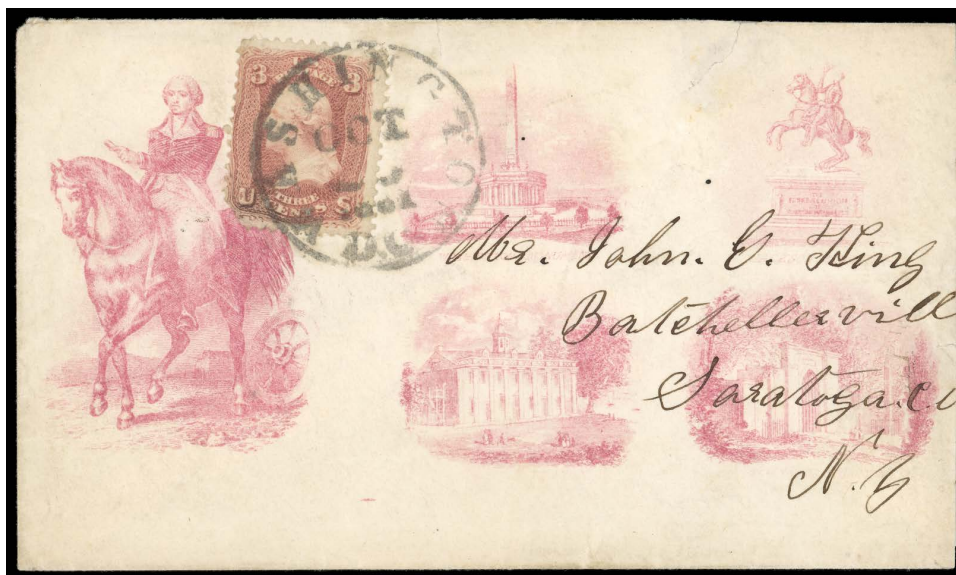 3 POSTAGE 3
U THREE S
CENTS
WASHINGTON
OCT
D.C.
Mr. John. G. King
Batchellervill
Saratoga.co
N.Y